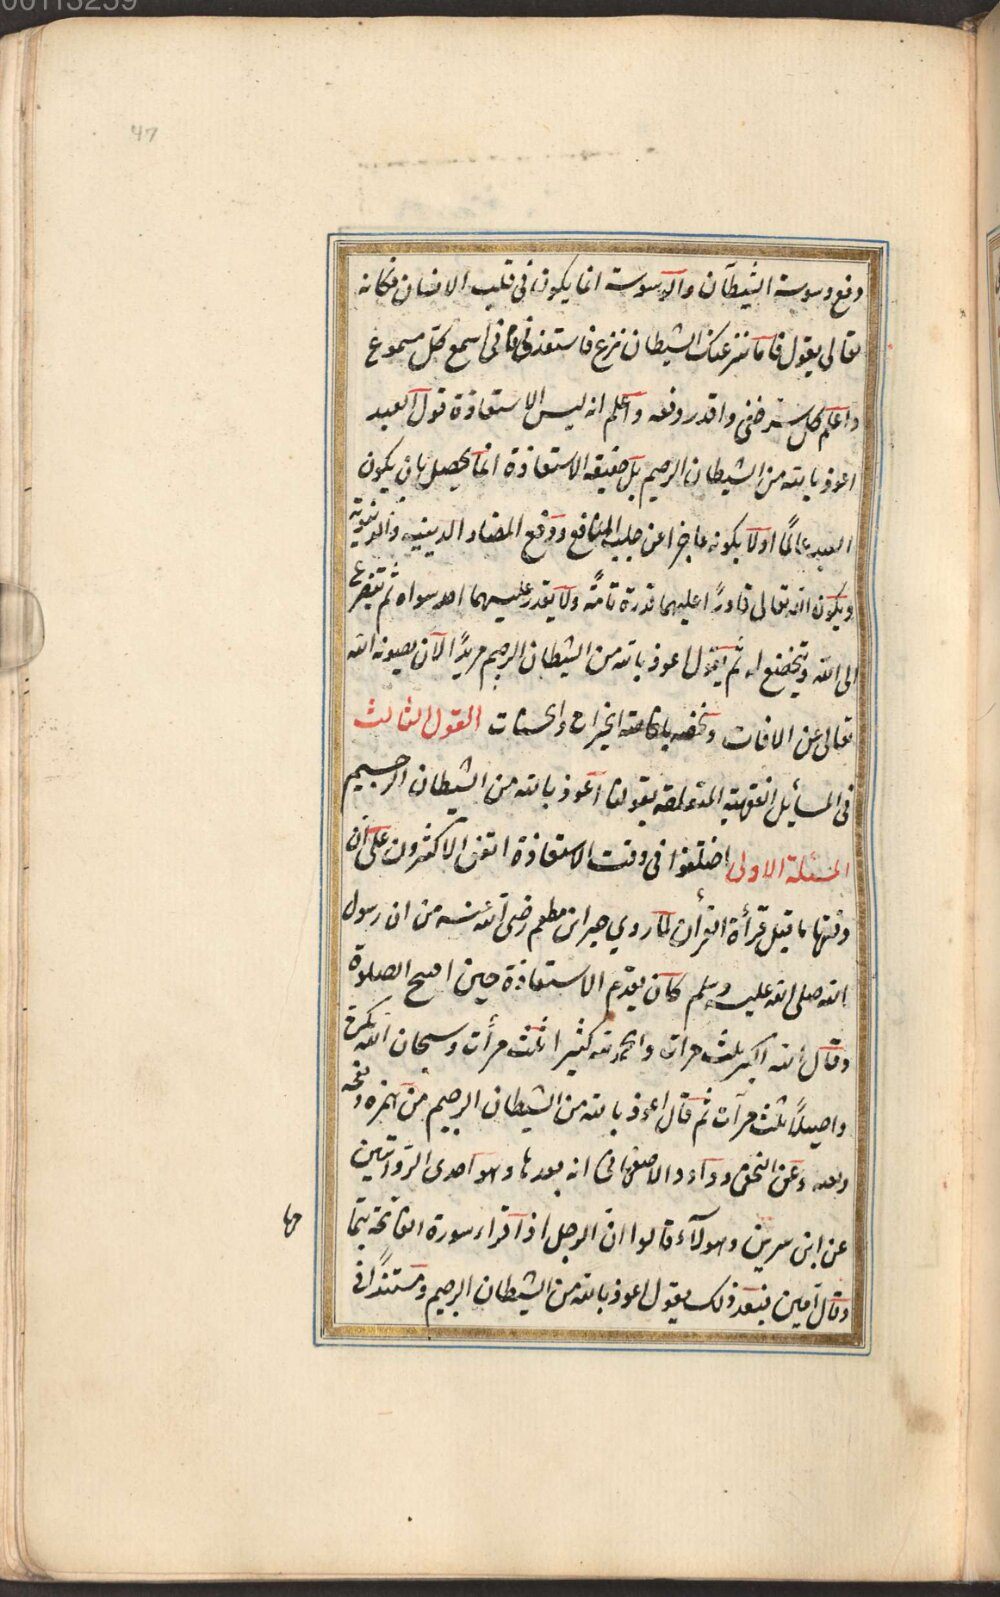 00113259
47
دفع وسوسة الشيطان والوسوسة انما يكون فى قلب الانسان فكانه
تعالى يقول فاما ينزغنك الشيطان نزغ فاستعذ بى فانى اسمع كل مسموع
واعلم كل سر خفى واقدر دفعه واعلم انه ليس الاستعاذة قول العبد
اعوذ بالله من الشيطان الرجيم بل حقيقه الاستعاذة انما يحصل بان يكون
العبد عالمًا اولا بكونه عاجزا عن جلب المنافع ودفع المضار الدينيه والدنيوية
ويكون الله تعالى قادرًا عليهما قدرة تامّة ولا يقدر عليهما احد سواه ثم يتضرع
الى الله ويتخضع له ثم يقول اعوذ بالله من الشيطان الرجيم مريدًا لان يصونه الله
تعالى عن الافات ويخصه بافاضه الخيرات والحسنات القول الثالث
فى المسائل الفقهية المتعلقة بقولنا اعوذ بالله من الشيطان الرجيم
المسئلة الاولى اختلفوا فى وقت الاستعاذة اتفق الاكثرون على ان
وقتها ما قبل قرأة القرأن لما روي جبير ابن مطعم رضى الله عنه من ان رسول
الله صلى الله عليه وسلم كان يقدم الاستعاذة حين افتح الصلاة
وقال الله اكبر ثلث مرات والحمد لله كثيرا ثلث مرأت وسبحان الله بكرة
واصيلًا ثلث مرآت ثم قال اعوذ بالله من الشيطان الرجيم من همزه ونفخه
وعن النخعى وداود الاصفهانى انه بعدها وهو احدى الرّوايتين
عن ابن سرين وهولآء قالوا انّ الرجل اذا قراء سورة الفاتحة بتما
مها
وقال آمين فبعد ذلك يقول اعوذ بالله من الشيطان الرجيم ومستندًا فى